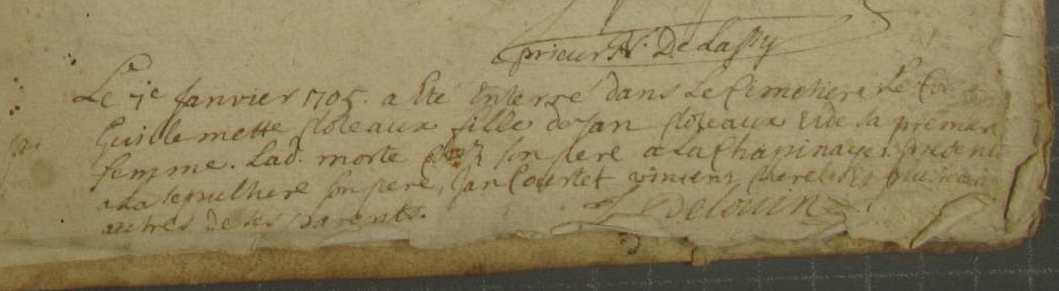 prieur N. De Lassy
Le 7e Janvier 1705. a Ete Enterré dans Le Cimetiere Le Cor
Guillemette floteaux fille de Jan floteaux & de sa premiere
femme. Lad. morte chez son pere a La Chapinaye. presents
a La sepulture son pere, Jan Courtet vincent
autres de ses parents. Delouin